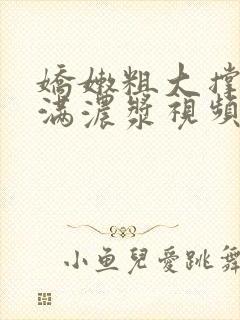 嬌嫩粗大撐
滿濃漿視頻
小魚兒愛跳舞